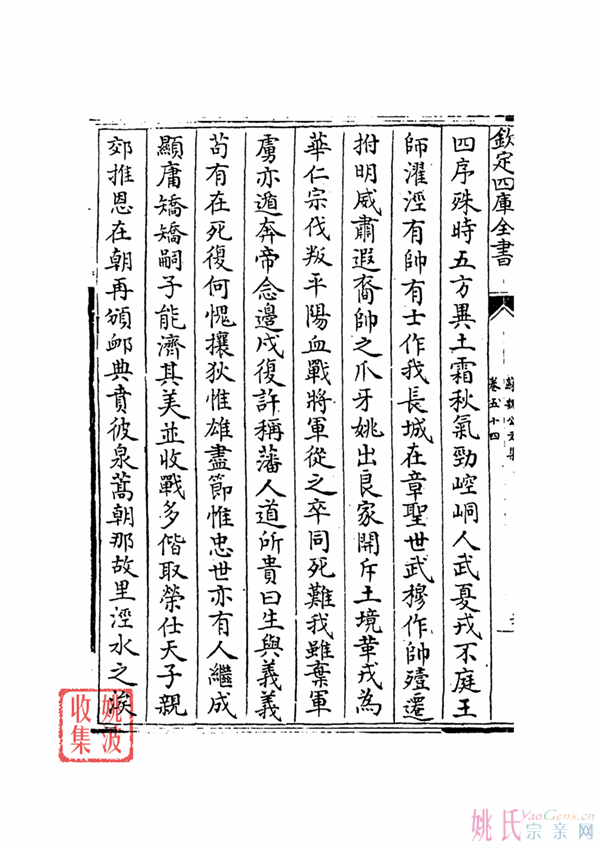 欽定四庫全書
蘇魏公文集
卷五十四
四序殊時五方異土霜秋氣勁崆峒人武夏戎不庭王
師濯涇有帥有士作我長城在章聖世武穆作帥殪遷
拊明威肅遐裔帥之爪牙姚出良家開斥土境革戎為
華仁宗伐叛平陽血戰將軍從之卒同死難我雖棄軍
虜亦遁奔帝念邊戍復許稱藩人道所貴曰生與義義
苟有在死復何愧攘狄惟雄盡節惟忠世亦有人繼成
顯庸矯矯嗣子能濟其美並收戰多偕取榮仕天子親
郊推恩在朝再頒卹典賁彼泉蒿朝那故里涇水之涘
姚波
收集
姚氏宗亲网
YaoGens.cn